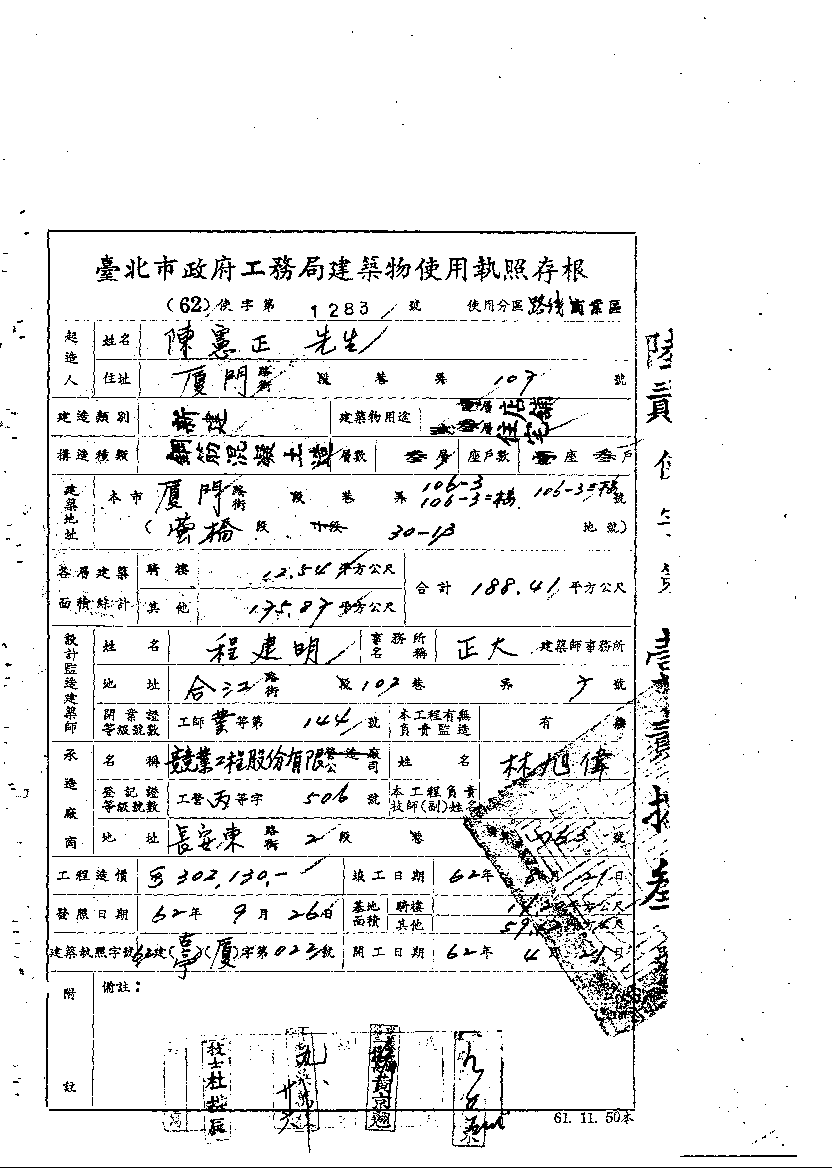 臺北市政府工務局建築物使用執照存根
(62)使字第 1283 號 使用分區 路線商業區
起造人 姓名 陳憲正 先生
住址 厦門 路街 段 巷 弄 107 號
建造類別 新建 建築物用途 層店舖 層住宅
構造種類 鋼筋混凝土造 層數 叁層 座戶數 壹座 叁戶
建築地址 本市 厦門 路街 段 巷 弄 106-3 106-3二樓 106-3三樓 號
(螢橋 段 小段 30-13 地號)
各層建築面積綜計 騎樓 12.54 平方公尺 合計 188.41 平方公尺
其他 175.87 平方公尺
設計監造建築師 姓名 程建明 事務所名稱 正大 建築師事務所
地址 合江 路街 段 107 巷 弄 7 號
開業證等級號數 工師業等第 144 號 本工程有無負責監造 有
承造廠商 名稱 競業工程股份有限營造廠公司 姓名 林旭偉
登記證等級號數 工營丙等字 506 號 本工程負責技師(副)姓名
地址 長安東 路街 2 段 巷 號
工程造價 302,130.- 竣工日期 62年 月 21日
發照日期 62年 9月 26日 基地面積 騎樓 平方公尺
其他 平方公尺
建築執照字號 62建( )(厦)字第023號 開工日期 62年 4月 21日
附註 備註:
技士杜
黃京
61. 11. 50本
陸貳使字第壹貳捌叁號